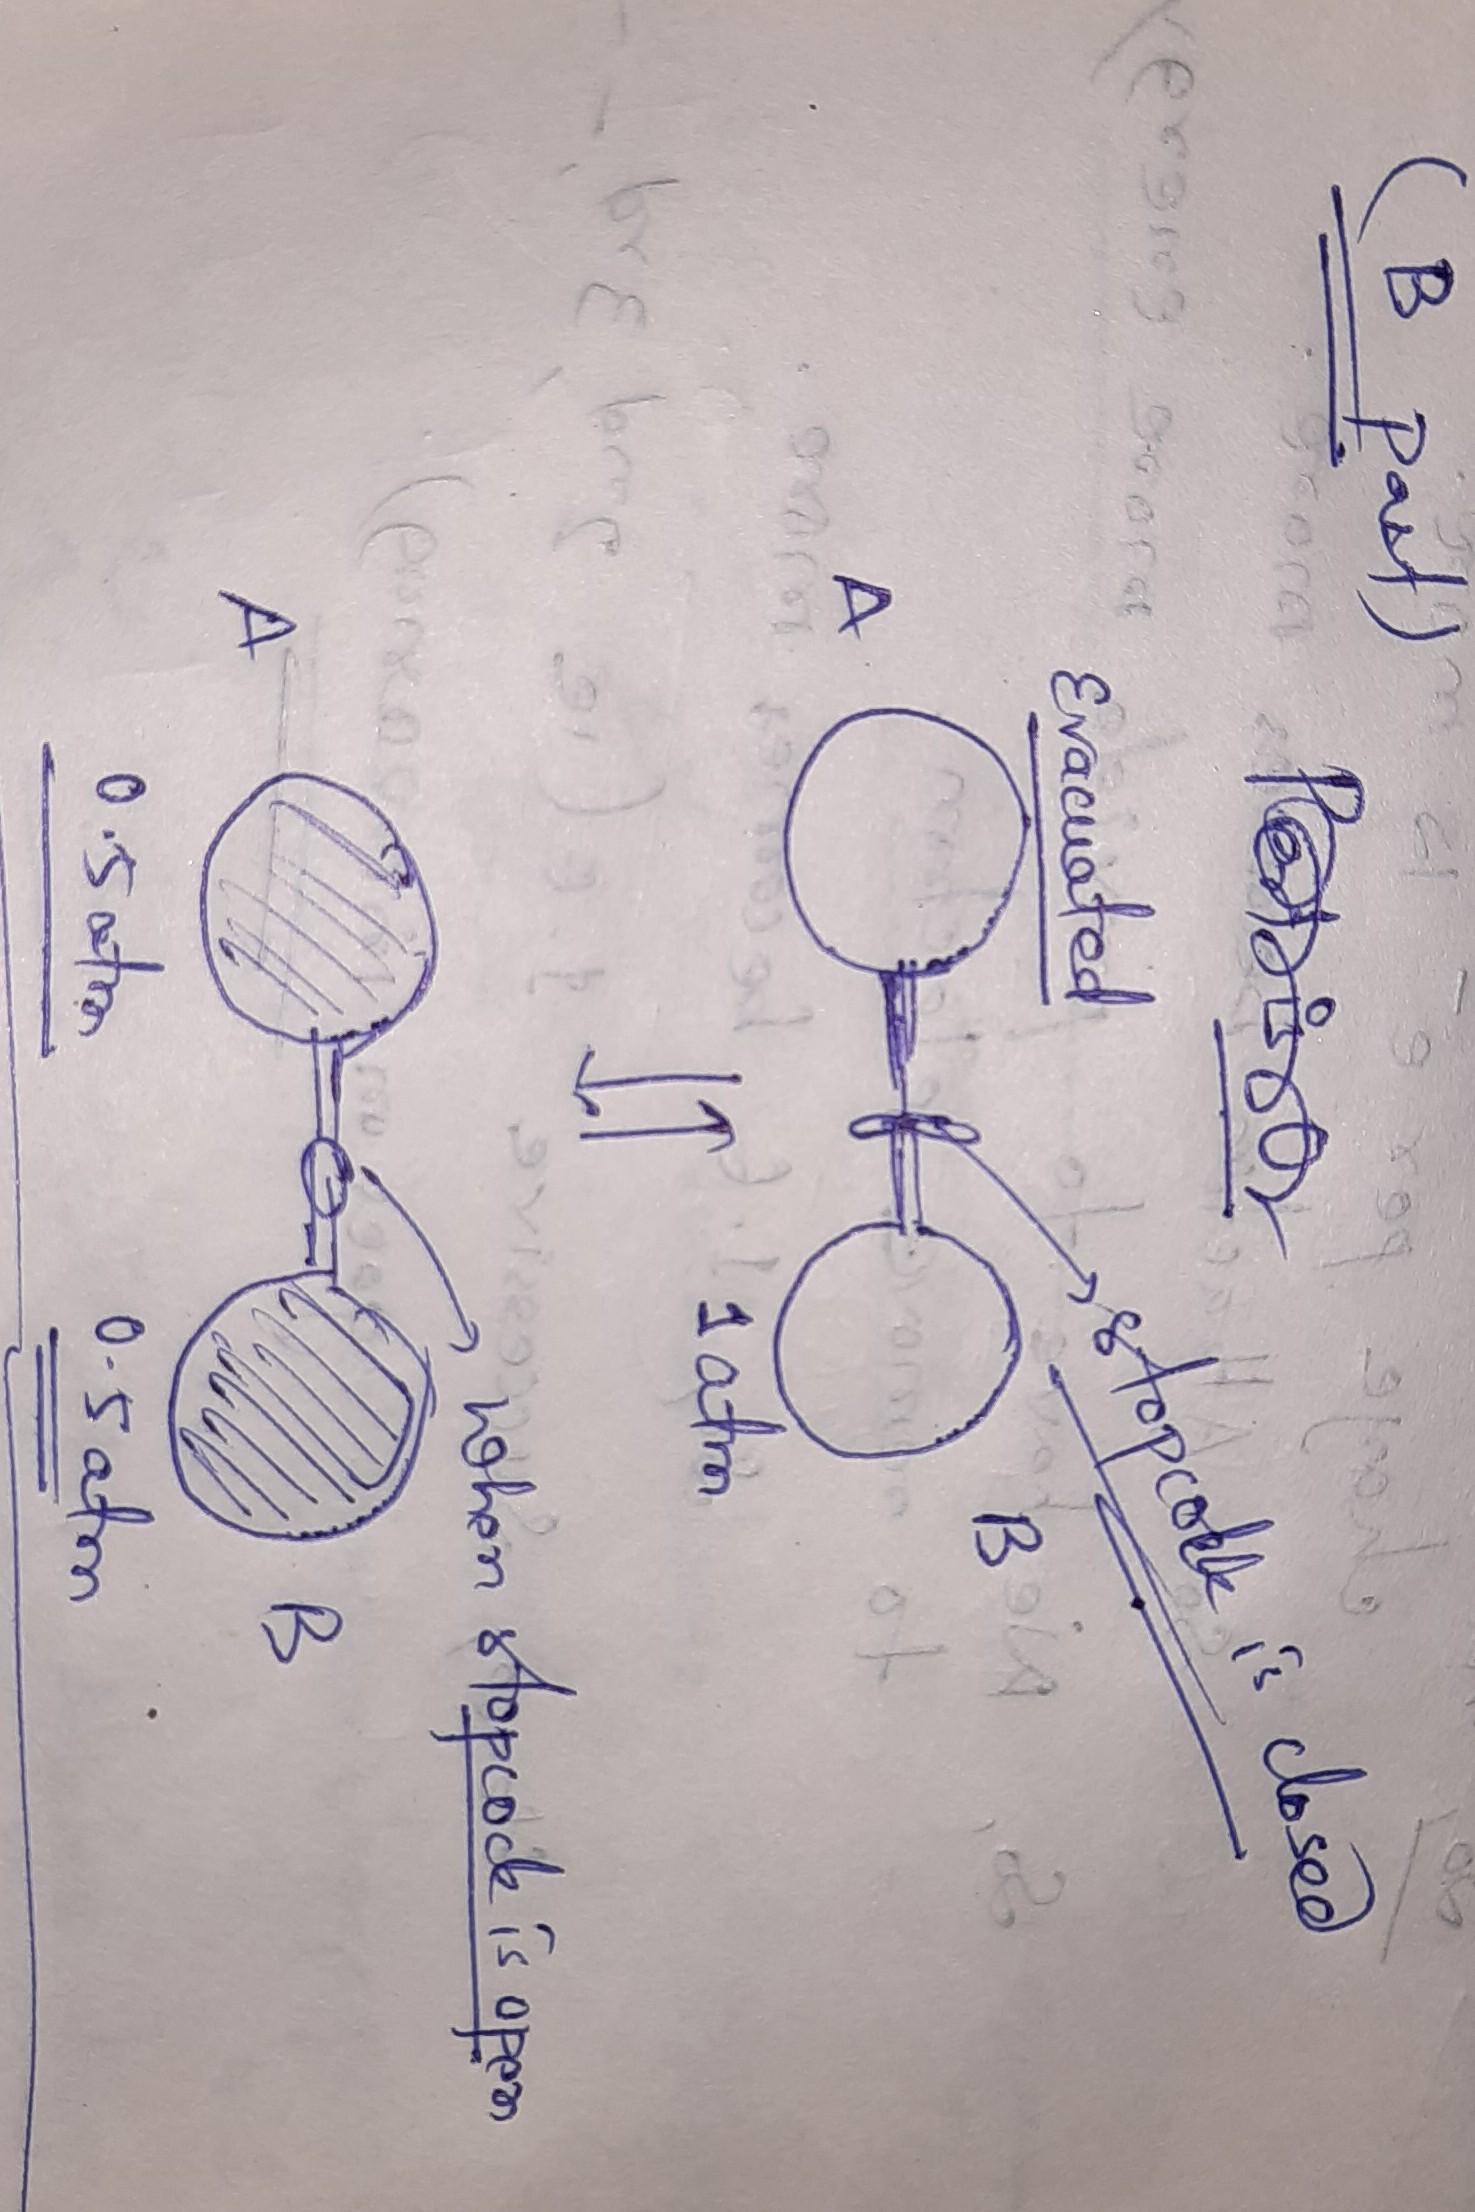 (B Part)
Evacuated
stopcock is closed
A
B
1 atm
when stopcock is open
A
B
0.5 atm
0.5 atm